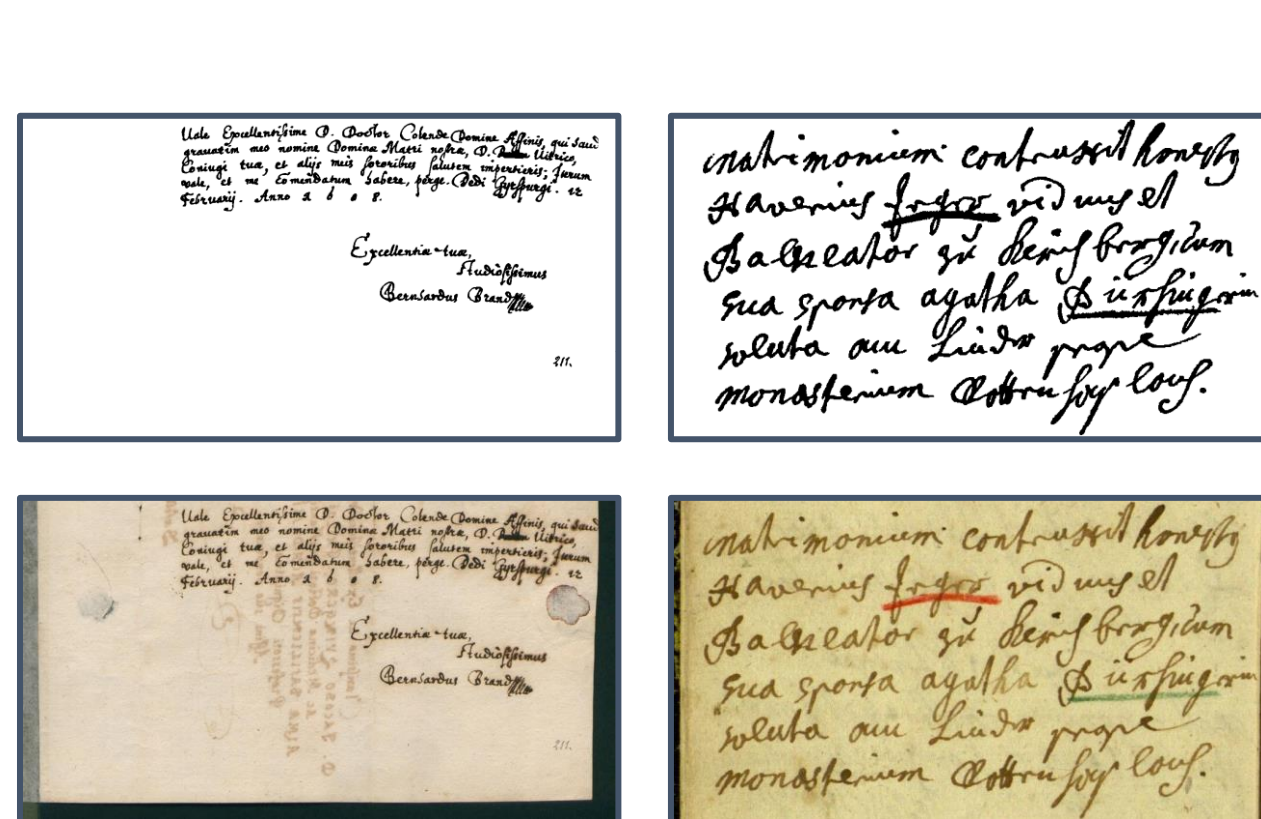 Uale Excellentissime D. Doctor Colende Domine Affinis, qui haud
gravatim meo nomine Dominæ Matri nostræ, D. Uitrico,
Coniugi tuæ, et alijs meis sororibus salutem impertieris; Iterum
vale, et me comendatum habere, perge. Dedi
Februarij. Anno 1 6 0 8. 12
Excellentiæ tuæ,
studiosissimus
Bernhardus Brand
211.
matrimonium contraxit honestg
Xaverius Jeger viduus et
Balneator zu Kirchberg, cum
sua sponsa agatha Dürhingerin
soluta aus prope
monasterium
Uale Excellentissime D. Doctor Colende Domine Affinis, qui haud
gravatim meo nomine Dominæ Matri nostræ, D. Uitrico,
Coniugi tuæ, et alijs meis sororibus salutem impertieris; Iterum
vale, et me comendatum habere, perge. Dedi
Februarij. Anno 1 6 0 8. 12
Excellentiæ tuæ,
studiosissimus
Bernhardus Brand
211.
matrimonium contraxit honestg
Xaverius Jeger viduus et
Balneator zu Kirchberg, cum
sua sponsa agatha Dürhingerin
soluta aus prope
monasterium